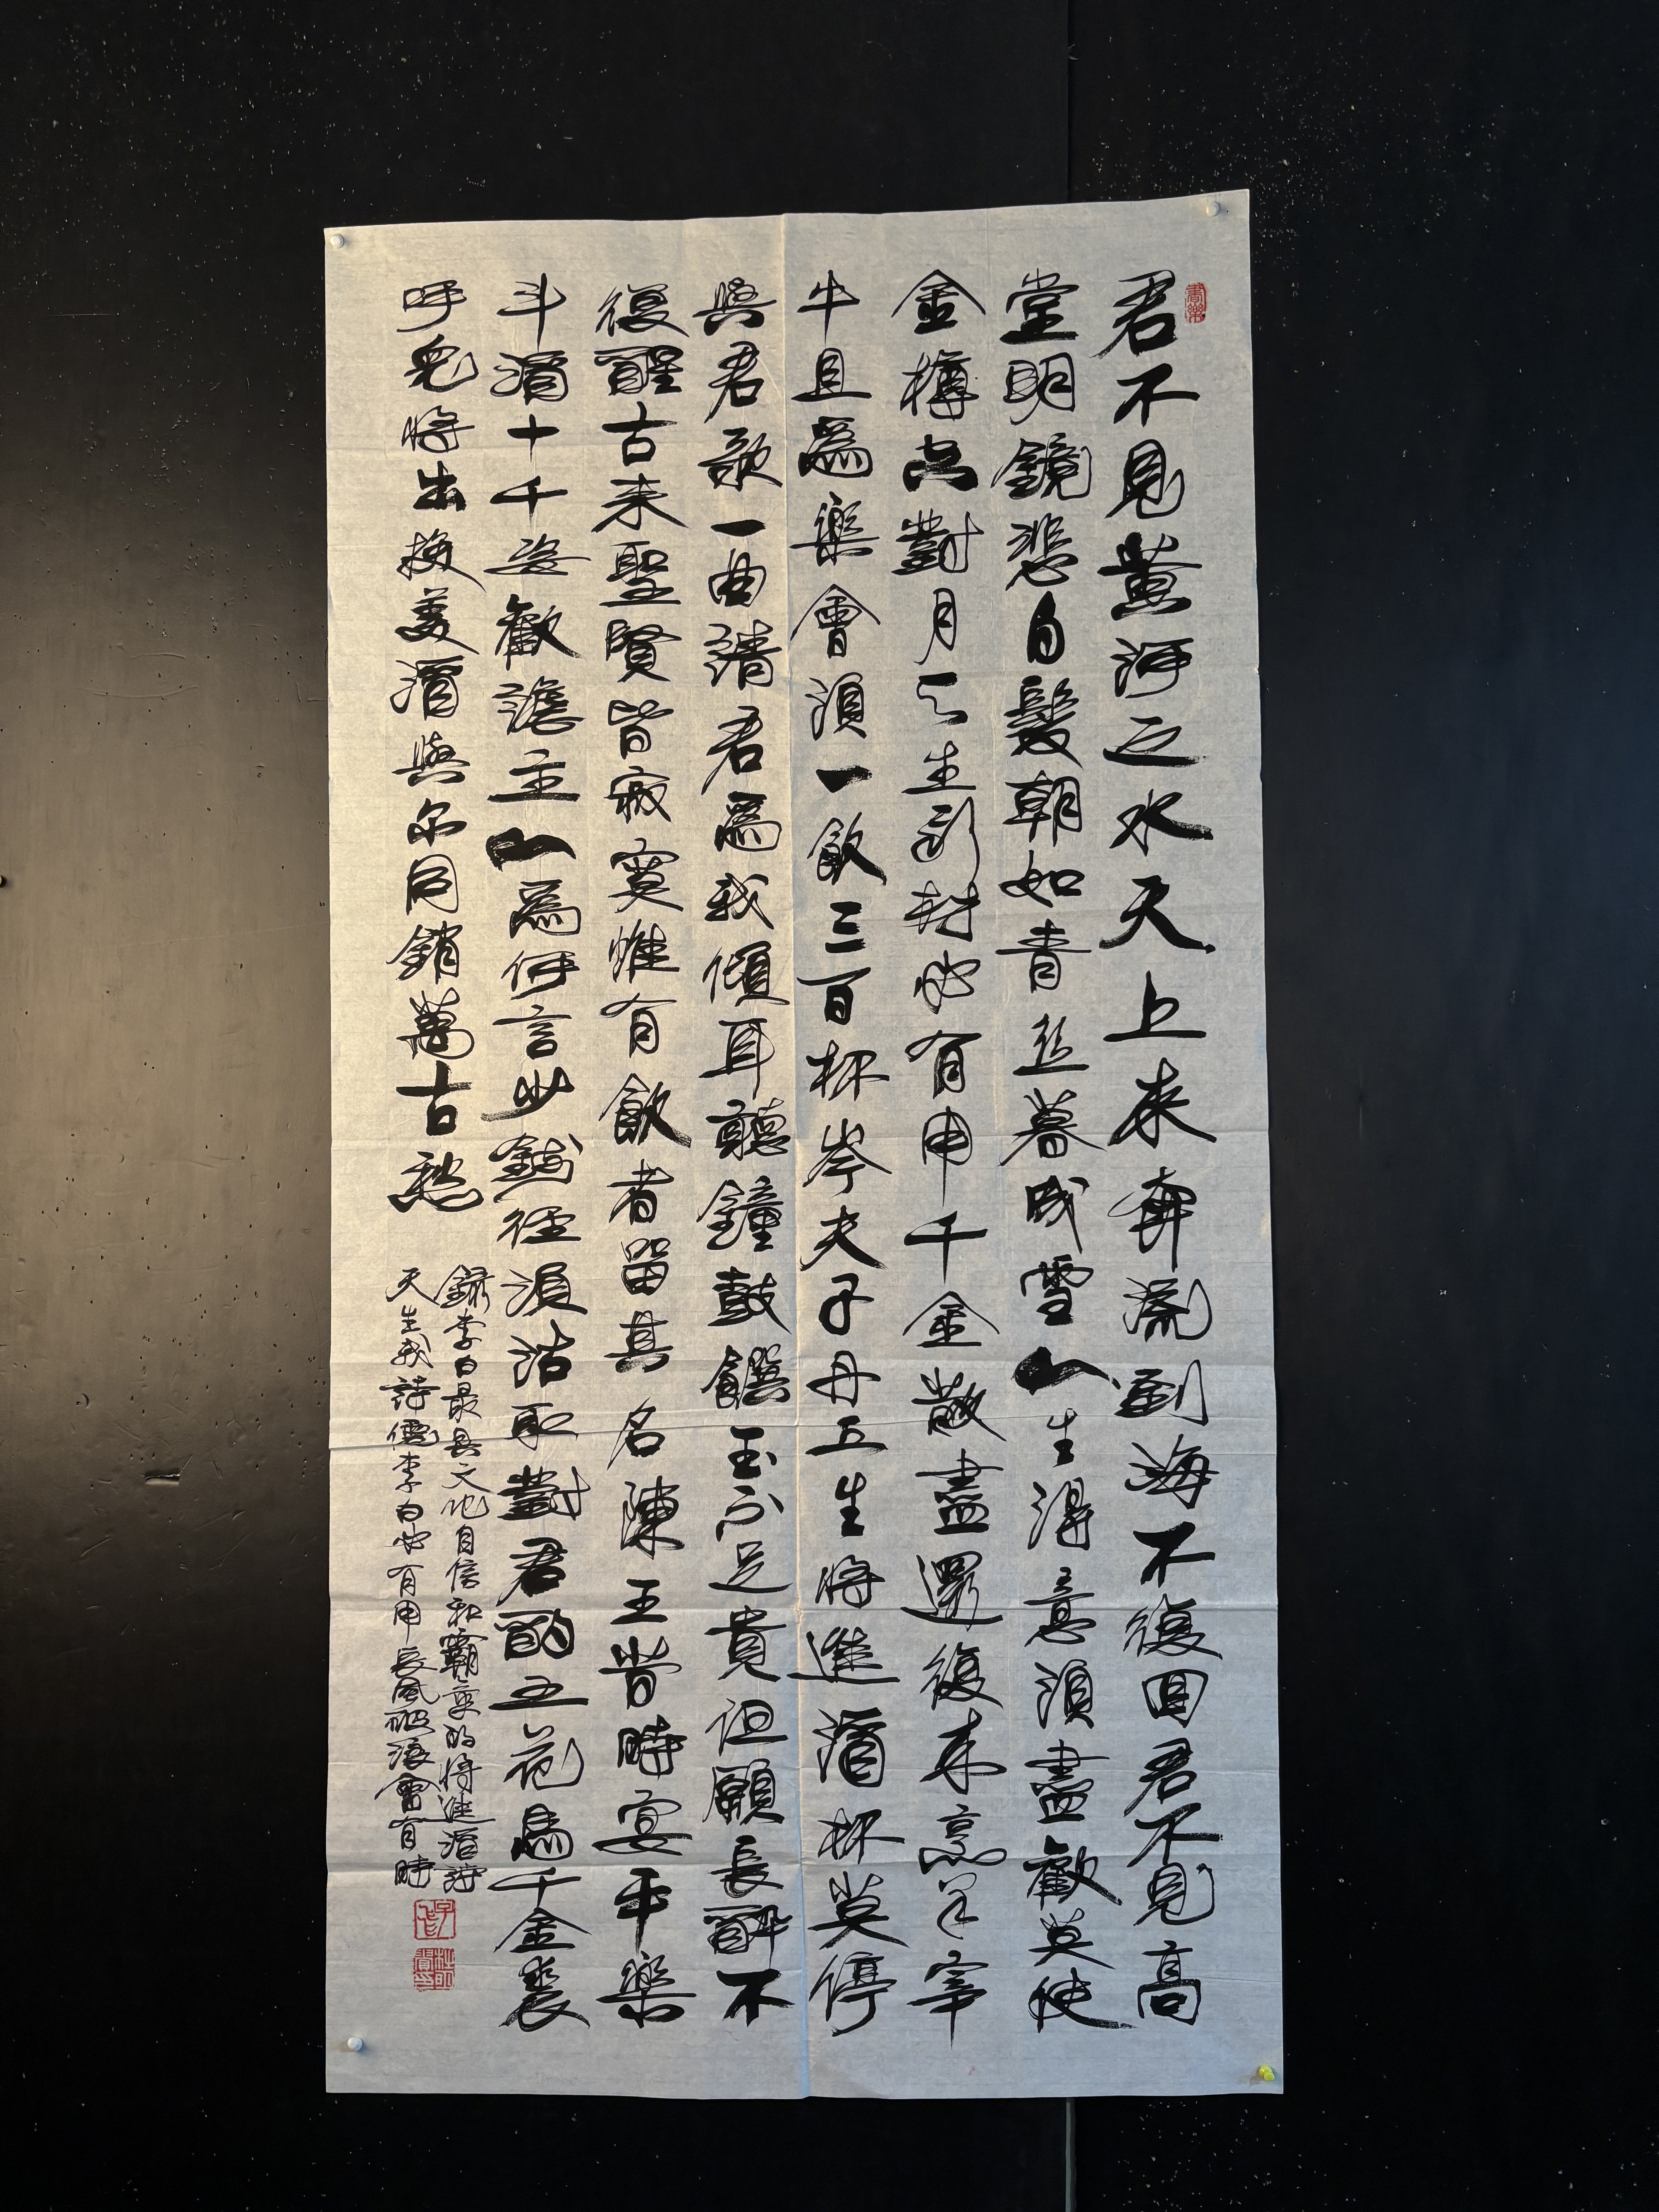 君不見黃河之水天上來奔流到海不復回君不見高
堂明鏡悲白髮朝如青絲暮成雪人生得意須盡歡莫使
金樽空對月天生我材必有用千金散盡還復來烹羊宰
牛且爲樂會須一飲三百杯岑夫子丹丘生將進酒杯莫停
與君歌一曲請君爲我傾耳聽鐘鼓饌玉不足貴但願長醉不
復醒古來聖賢皆寂寞惟有飲者留其名陳王昔時宴平樂
斗酒十千恣歡謔主人爲何言少錢徑須沽取對君酌五花馬千金裘
呼兒將出換美酒與爾同銷萬古愁
錄李白最具文化自信和霸氣的將進酒詩
天生我詩仙李白必有用長風破浪會有時